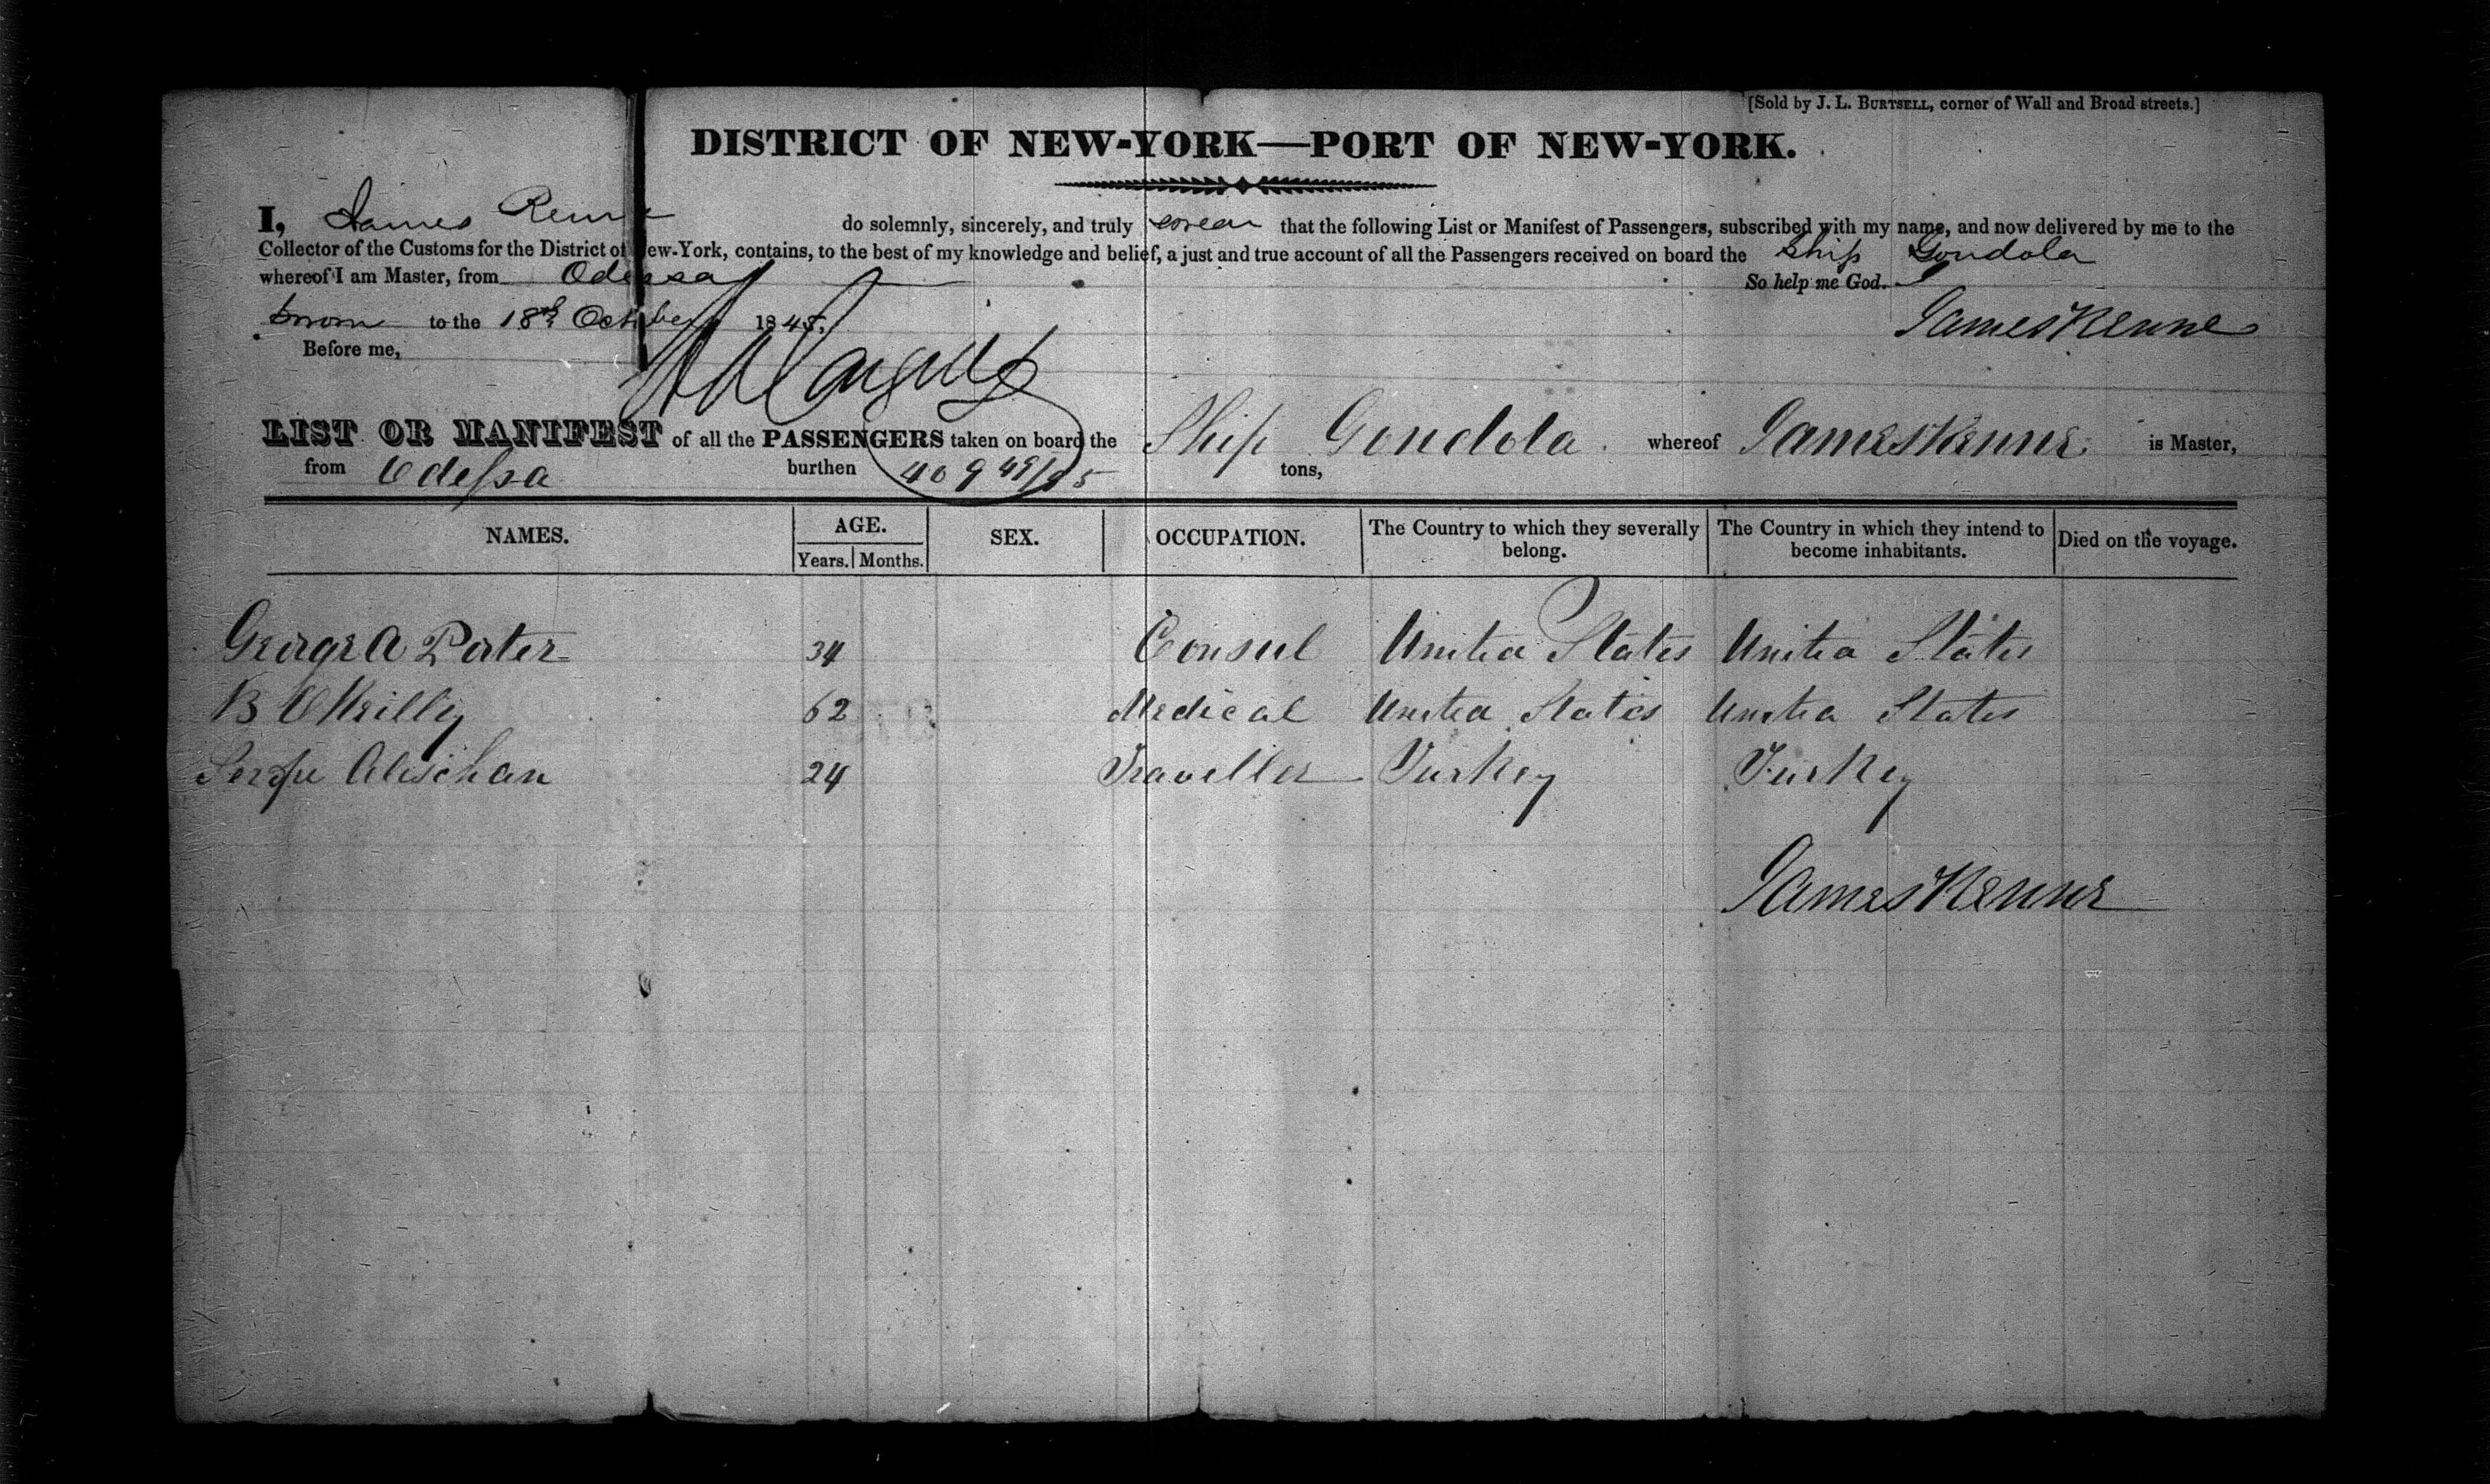 [Sold by J. L. BURTSELL, corner of Wall and Broad streets.]
DISTRICT OF NEW-YORK—PORT OF NEW-YORK.
I, James do solemnly, sincerely, and truly swear that the following List or Manifest of Passengers, subscribed with my name, and now delivered by me to the
Collector of the Customs for the District of New-York, contains, to the best of my knowledge and belief, a just and true account of all the Passengers received on board the Ship Gondola
whereof I am Master, from Odessa So help me God.
Sworn to the 18th October 1845. James Kenne
Before me,
LIST OR MANIFEST of all the PASSENGERS taken on board the Ship Gondola whereof James Kenne is Master,
from Odessa burthen 409 49/95 tons,
NAMES. AGE. SEX. OCCUPATION. The Country to which they severally belong. The Country in which they intend to become inhabitants. Died on the voyage.
Years. Months.
George A Porter 34 Consul United States United States
B OReilly 62 Medical United States United States
Alischan 24 Traveller Turkey Turkey
James Kenne